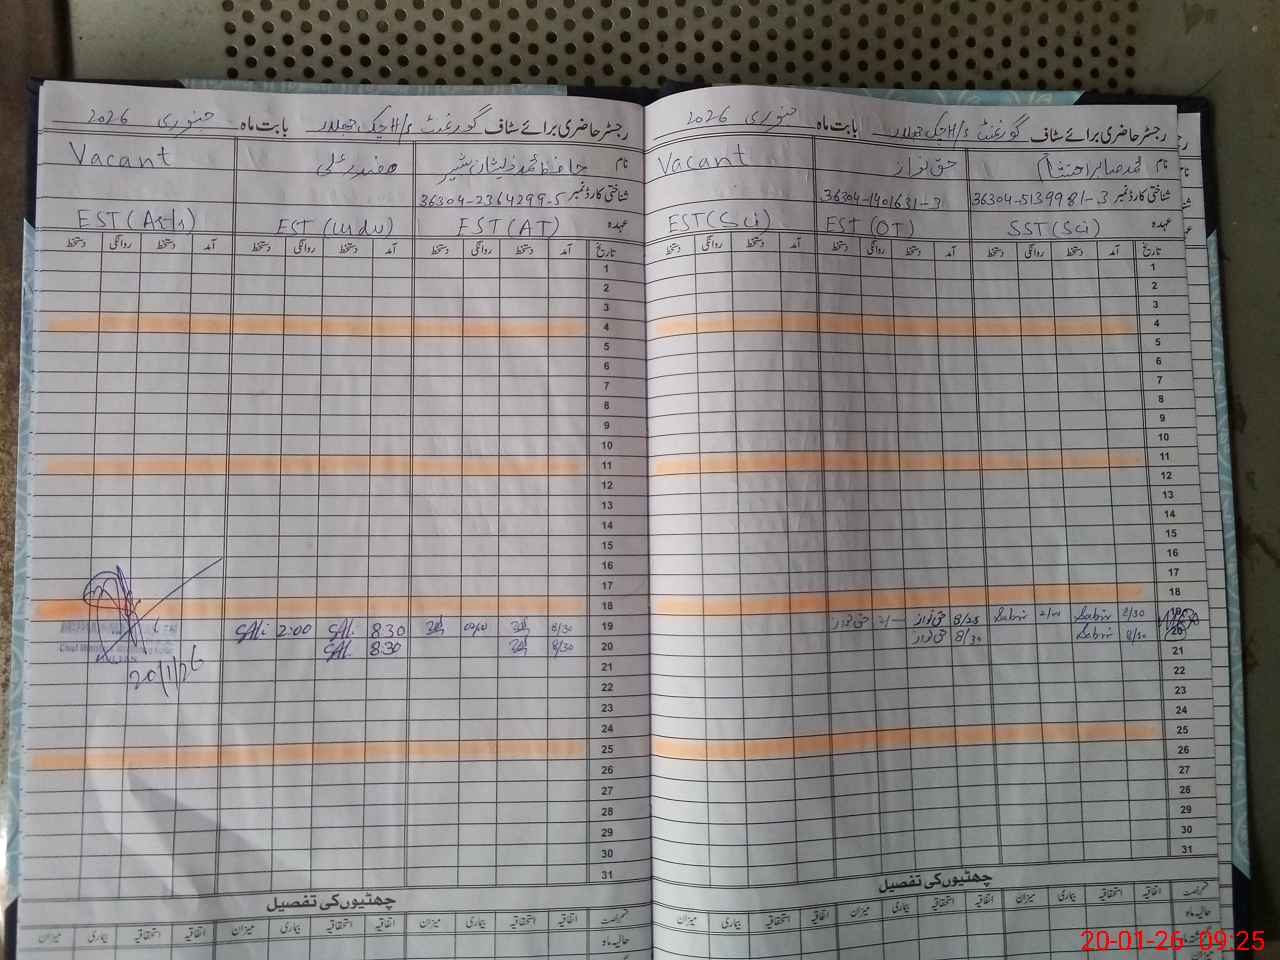 رجسٹر حاضری برائے سٹاف گورنمنٹ H/S چک بابت ماہ جنوری 2026
نام محمد صابر احتشام حق نواز Vacant
شناختی کارڈ نمبر 36304-5139981-3 36304-1401631-3
عہدہ SST(Sci) EST(OT) EST(Sci)
تاریخ آمد دستخط روانگی دستخط آمد دستخط روانگی دستخط آمد دستخط روانگی دستخط
1
2
3
4
5
6
7
8
9
10
11
12
13
14
15
16
17
18
19 8/30 Sabir 2/00 Sabir 8/25 حق نواز 2/— حق نواز
20 8/30 Sabir 8/30 حق نواز
21
22
23
24
25
26
27
28
29
30
31
چھٹیوں کی تفصیل
قسم رخصت اتفاقیہ استحقاقیہ بیماری میزان اتفاقیہ استحقاقیہ بیماری میزان اتفاقیہ استحقاقیہ بیماری میزان
حالیہ ماہ
رجسٹر حاضری برائے سٹاف گورنمنٹ H/S چک بابت ماہ جنوری 2026
نام حافظ محمد ذیشان بشیر صفدر علی Vacant
شناختی کارڈ نمبر 36304-2364299-5
عہدہ EST(AT) EST(Urdu) EST(Arts)
تاریخ آمد دستخط روانگی دستخط آمد دستخط روانگی دستخط آمد دستخط روانگی دستخط
1
2
3
4
5
6
7
8
9
10
11
12
13
14
15
16
17
18
19 8/30 8:30 SAli 2:00 SAli
20 8/30 8:30 SAli
20/1/26
21
22
23
24
25
26
27
28
29
30
31
چھٹیوں کی تفصیل
قسم رخصت اتفاقیہ استحقاقیہ بیماری میزان اتفاقیہ استحقاقیہ بیماری میزان اتفاقیہ استحقاقیہ بیماری میزان
حالیہ ماہ
20-01-26 09:25